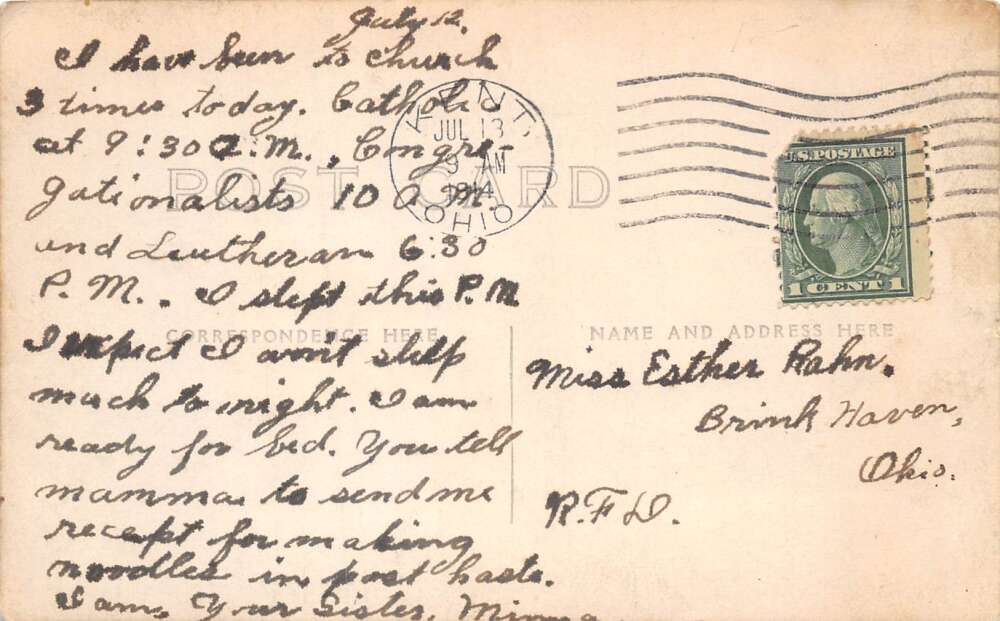 July 12.
I have been to church
3 times today. Catholic
at 9:30 A.M., Congre-
gationalists 10 A.M.
and Leutheran 6:30
P.M.. I slept this P.M
I expect I won't sleep
much to night. I am
ready for bed. You tell
mamma to send me
recept for making
noodles in post haste.
I am, Your Sister, Minna
KENT,
JUL 13
9 AM
1914
OHIO
U.S. POSTAGE
1 CENT 1
POST CARD
CORRESPONDENCE HERE
NAME AND ADDRESS HERE
Miss Esther Rahn.
Brink Haven,
Ohio.
R.F.D.